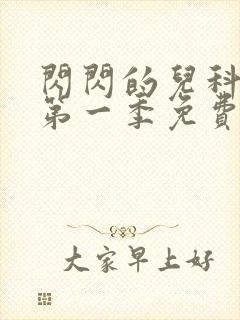 閃閃的兒科
第一季免費
大家早上好